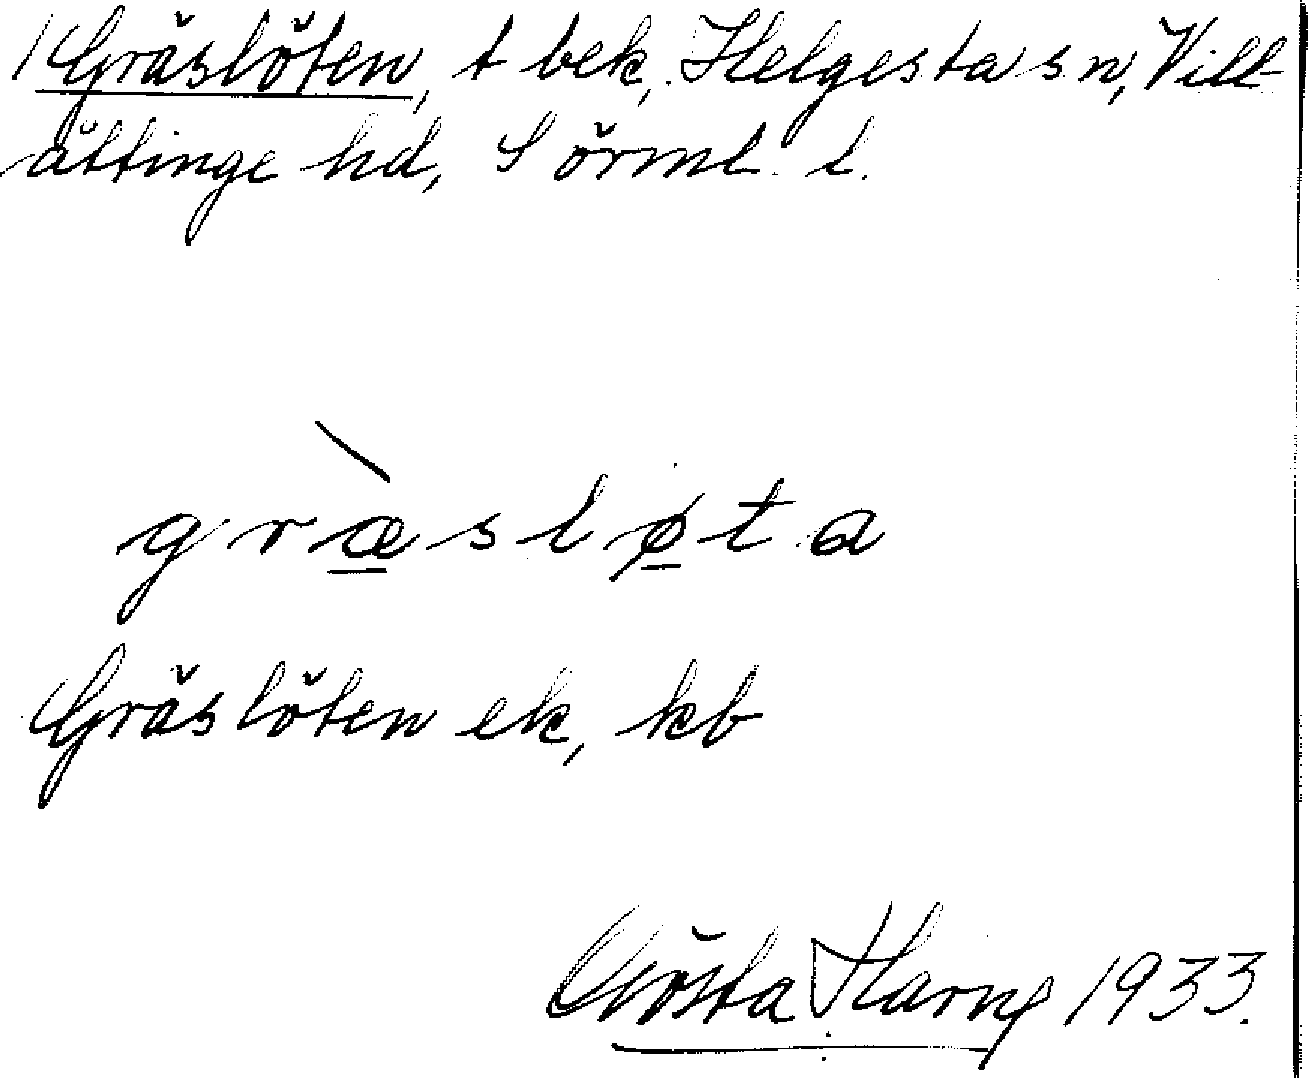 Gräslöten, t bek, Helgesta sn, Vill-
åttinge hd, Sörml. l.
gr<u>æ</u>̀sl<u>ø</u>ta
Gräslöten ek, kb
Gösta 1933.